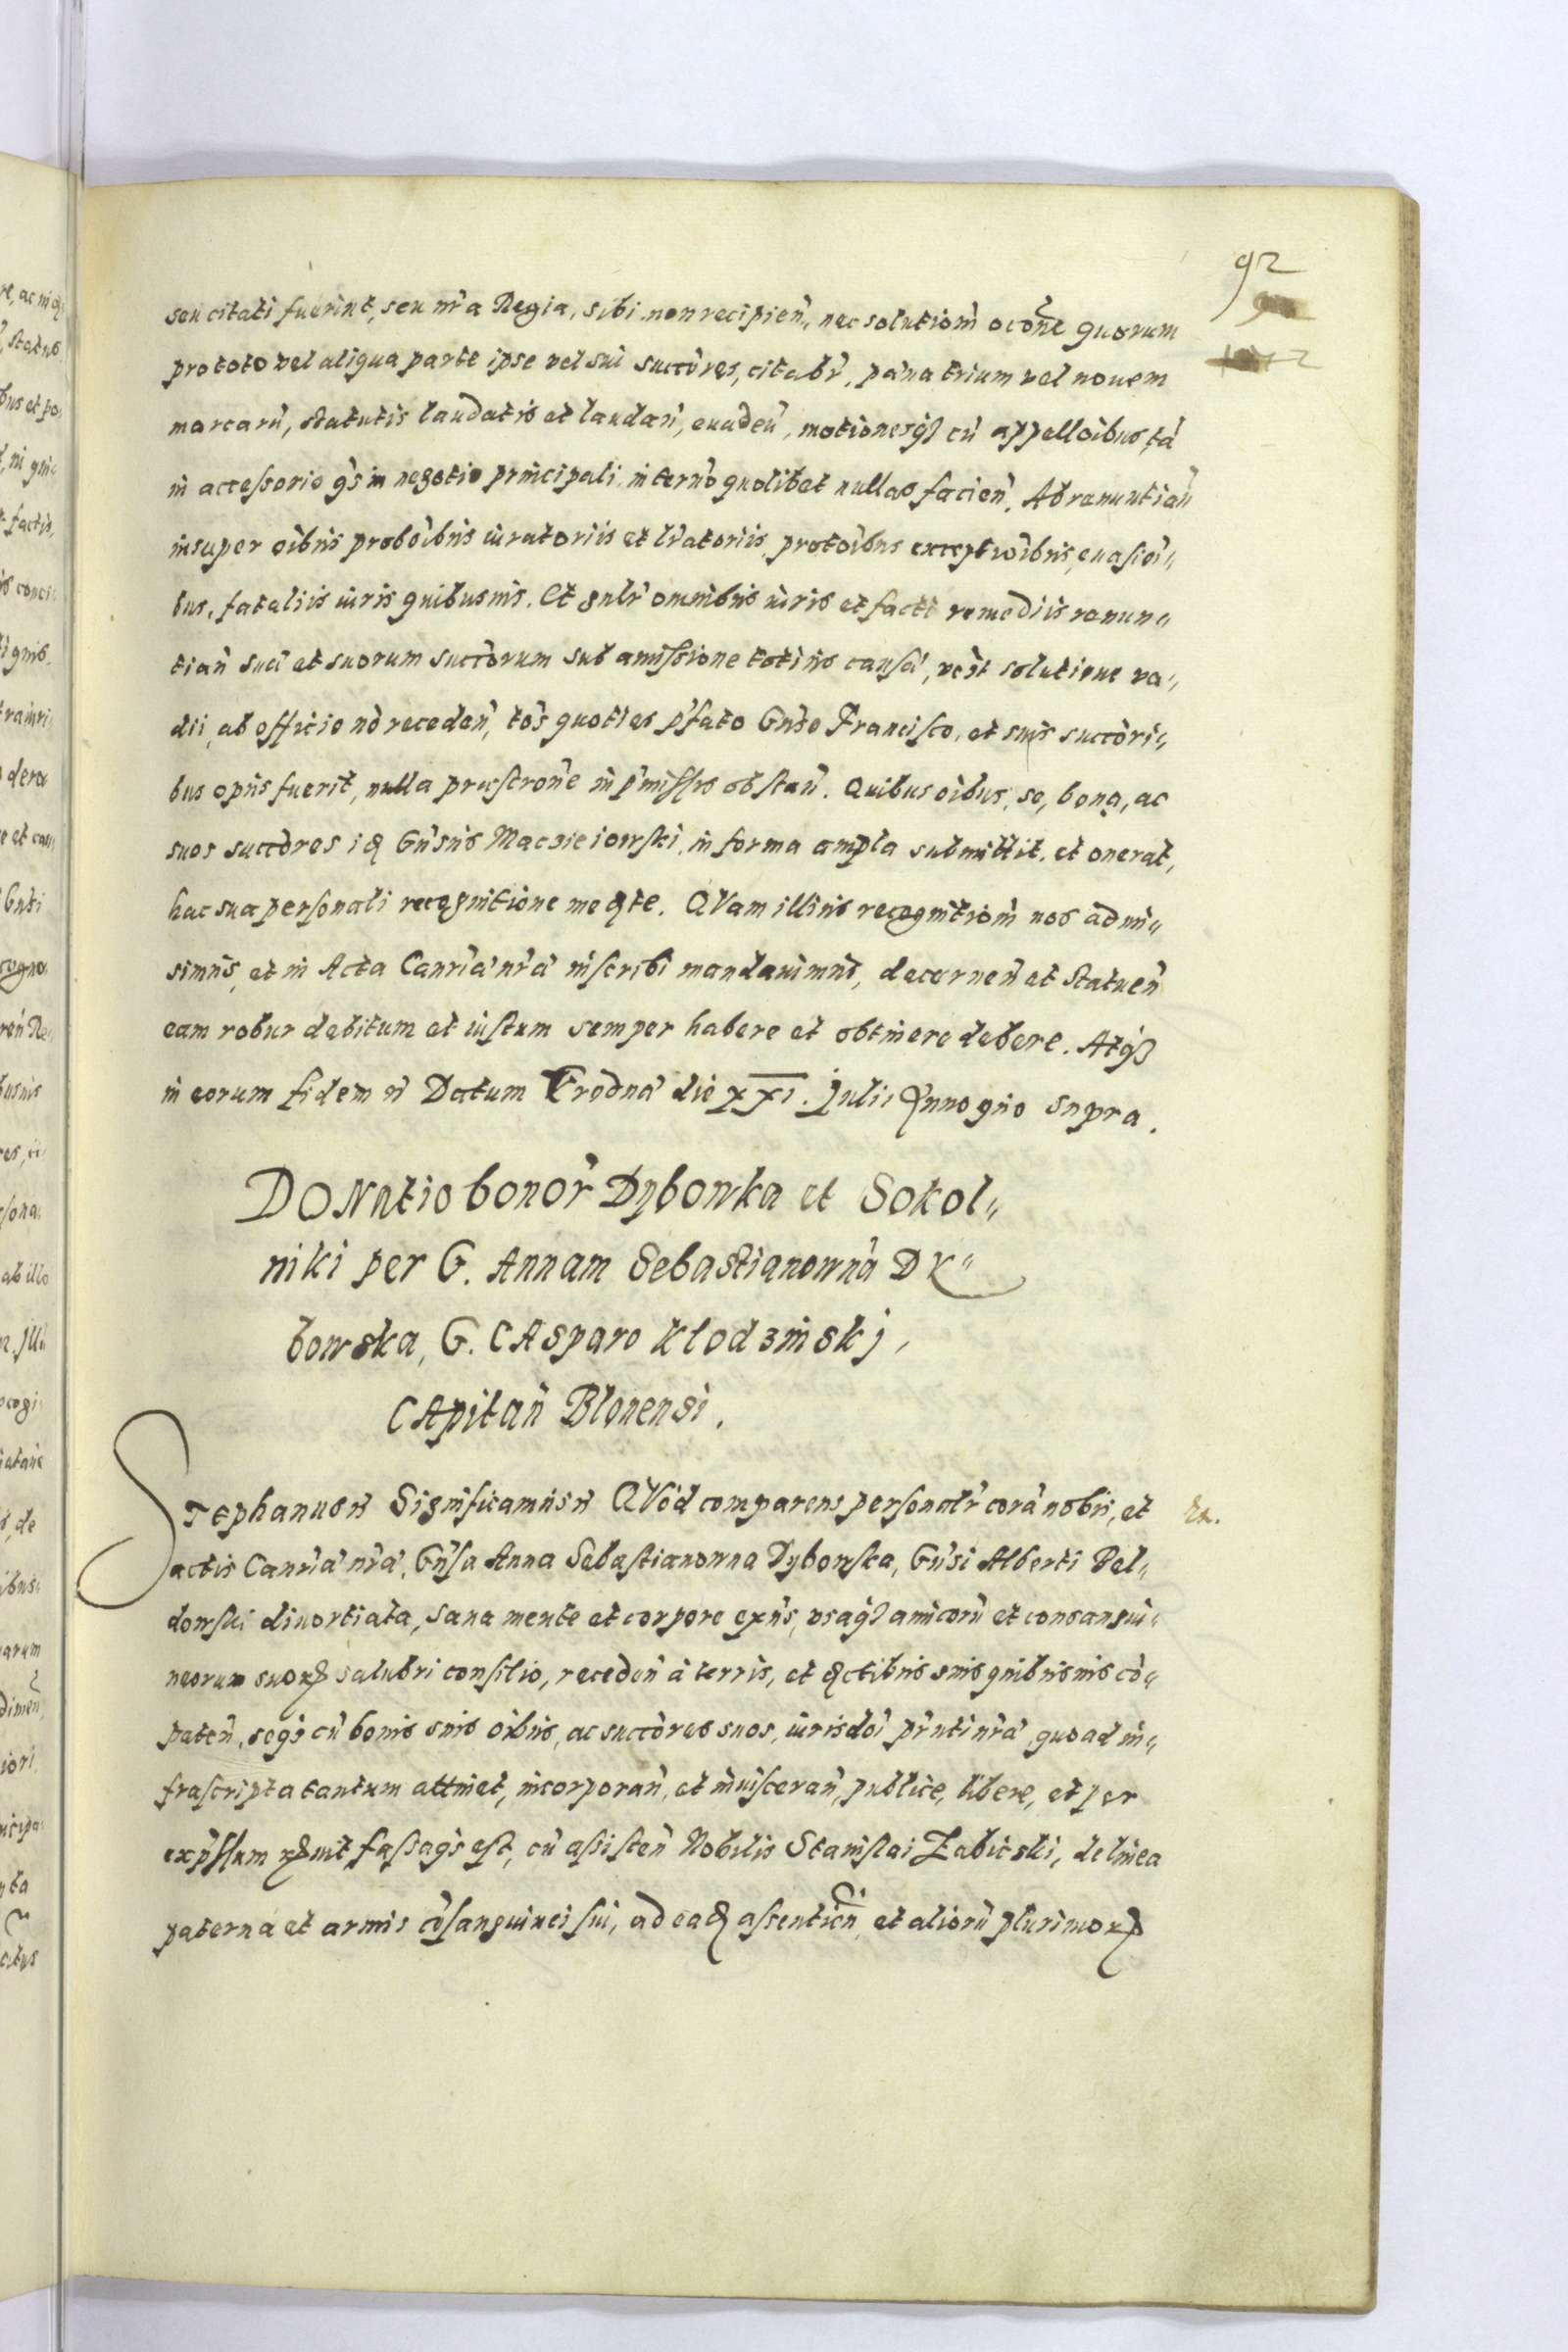 92
seu citati fuerint, seu nr̃a Regia, sibi non recipien̄, nec solutiom̃ occōne quorum
pro toto vel aliqua parte ipse vel sui succōres, citabr̃, pæna trium vel novem
marcarũ, statutis laudatis et laudan̄, evaden̄, motionesq3 cũ appellōibus, tã
in accessorio q̃s in negotio principali, in termõ quolibet nullas facien̄. Abrenuntian̄
insuper oĩbus probōibus iuratoriis et lr̃atoriis, protōibus exceptiōibus, evasiōi„
bus, fataliis iuris quibusuis. Et gnlr̃ omnibus iuris et facti remediis renun„
tian̄ suo et suorum succōrum sub amissione totius causæ, vĩgt solutione va„
dii, ab officio nõ receden̄, tõs quoties p̃fato Gn̄so Francisco, et suis succōri„
bus opus fuerit, nulla præscrōne in p̃missis obstan̄. Quibus oĩbus, se, bona, ac
suos succōres idẽ Gn̄sus Macieiowski, in forma ampla submittit, et onerat,
hac sua personali recognitione mediate. QVam illius recognitiom̃ nos admi„
simus, et in Acta Canr̃iæ nr̃æ inscribi mandavimus, decernen̄ et statuen̄
eam robur debitum et iustum semper habere et obtinere debere. Atq3
in eorum fidem etc̃ Datum Grodnæ die XXI. Julii Anno quo supra.
DONatio bonor̃ Dybowka et Sokol„
niki per G. Annam Sebastianownã DY„
bowska, G. CAsparo Klodzinskj,
CApitan̄ Blonensi.
STephanus etc̃ Significamus etc̃ QVod comparens personalr̃ corã nobis, et
actis Canr̃iæ nr̃æ, Gn̄sa Anna Sebastianowna Dybowska, Gn̄si Alberti Bel„
dowski divortiata, sana mente et corpore exñs, usaq3 amicorũ et consangui„
neorum suoꝝ salubri consilio, receden̄ à terris, et distibus suis quibusuis cõ„
peten̄, seq3 cũ bonis suis oĩbus, ac succōres suos, iurisdōi pr̃nti nr̃æ, quoad in„
frascripta tantum attinet, incorporan̄, et inviscerañ, publice, libere, et per
exp̃ssum recognovit fassaq3 est, cũ assisten̄ Nobilis Stanislai Zabicski, de linea
paterna et armis cõsanguinei sui, ad ea assentien̄, et aliorũ plurimoꝝ